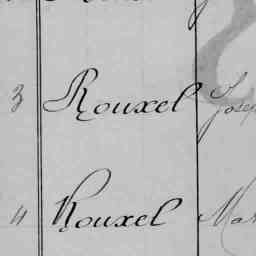 3 Rouxel Josep
4 Rouxel Mar